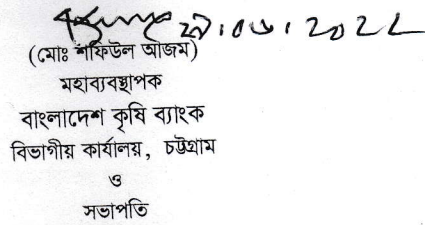 ২৯.০৬.2022
(মোঃ শফিউল আজম)
মহাব্যবস্থাপক
বাংলাদেশ কৃষি ব্যাংক
বিভাগীয় কার্যালয়, চট্টগ্রাম
ও
সভাপতি